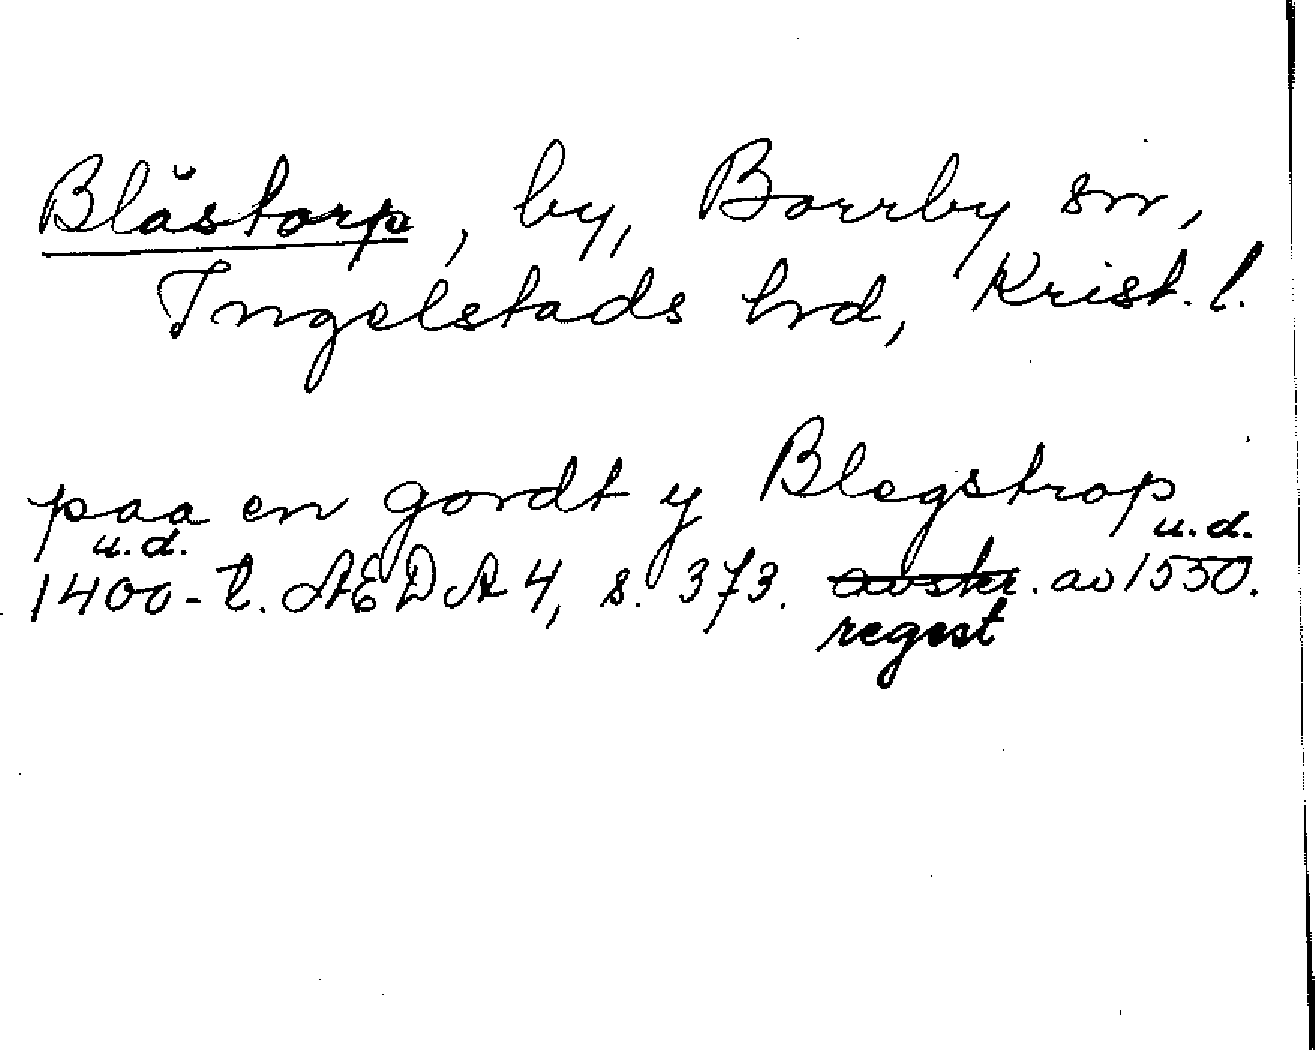 Blåstorp, by, Borrby sn,
Ingelstads hrd, Krist. l.
paa en gordt y Blegstrop
u.d. u.d.
1400-t. ÆDA 4, s. 373. avskr. av 1550.
regest